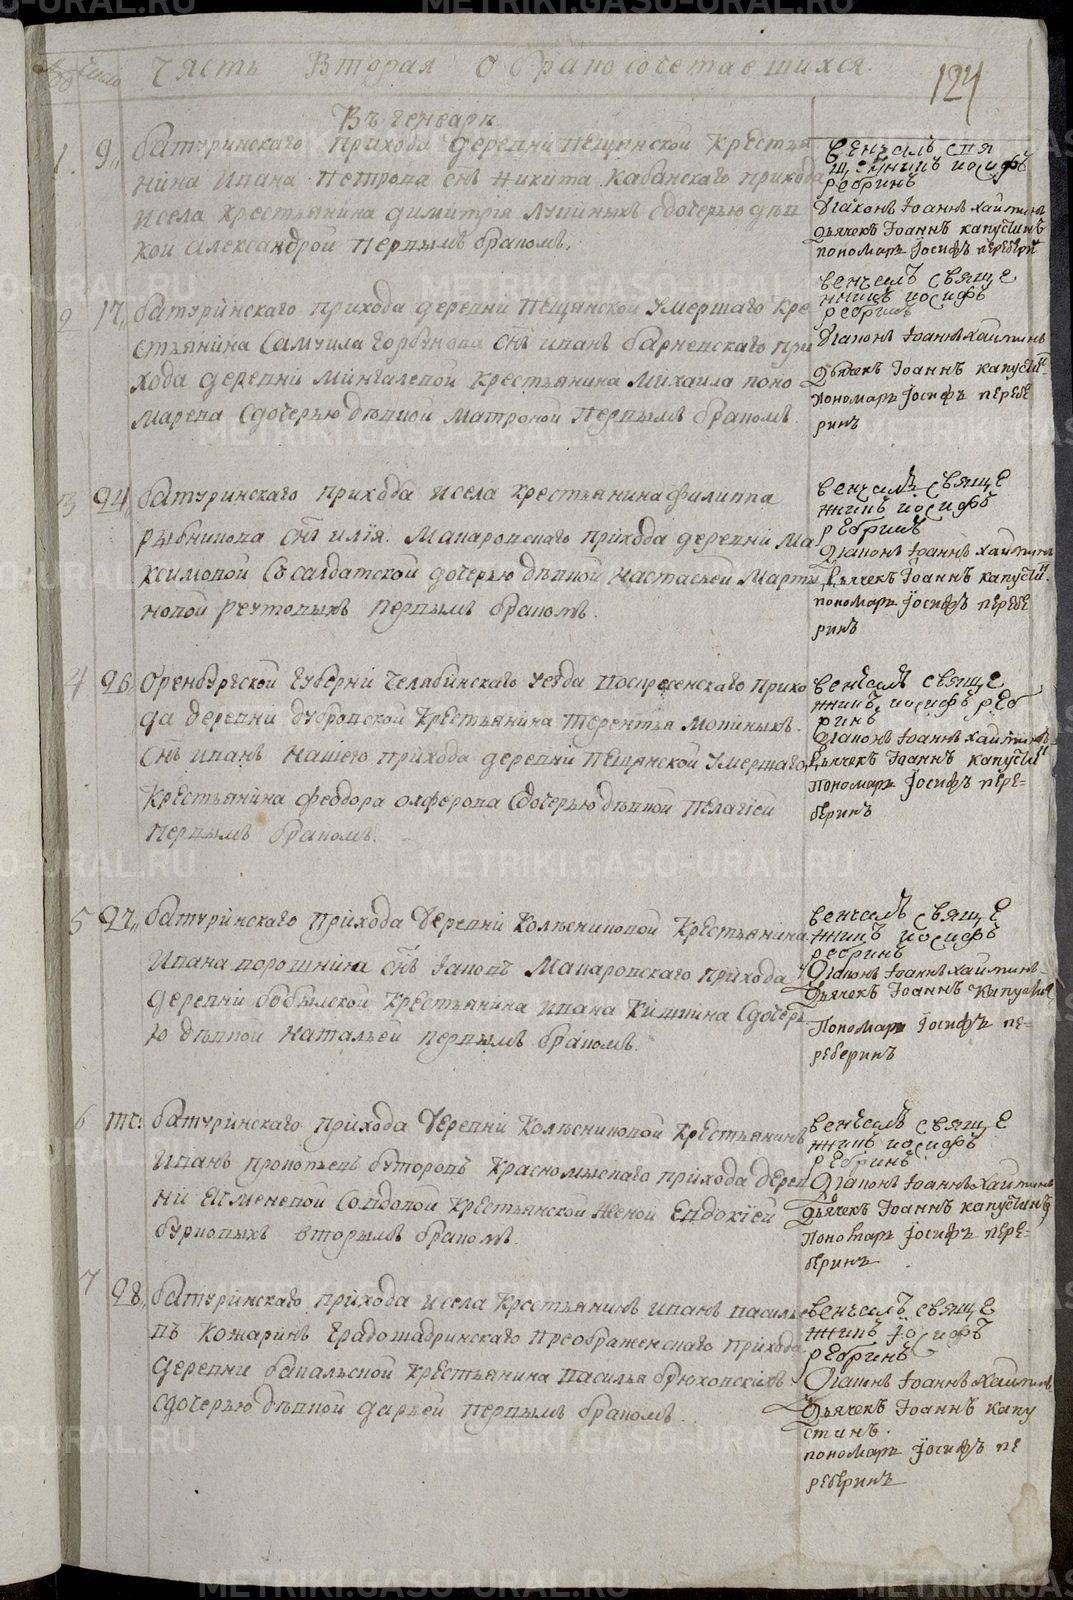 Число Часть Вторая О бракосочетавшихся. 124
Въ генварѣ
1. 9. батуринскаго прихода деревни пещанской крестья
нина ивана петрова снъ никита кабанскаго прихода
исела крестьянина димитрія лупиныхъ сдочерью дѣв
кой александрой первымъ бракомъ.
венчалъ свя
щенникъ иосифъ
ребринъ
Діаконъ Іоаннъ хаймин
Дьячекъ Іоаннъ капустинъ
пономарь Іосифъ переберин
2 17. батуринскаго прихода деревни пещанской умершаго кре
стьянина Самуила горбунова снъ иванъ барневскаго при
хода деревни мингалевой крестьянина михаила поно
марева сдочерью дѣвкой матроной первымъ бракомъ
венчалъ свяще
нникъ иосифъ
ребринъ
Діаконъ Іоаннъ хайминъ
Дьячекъ Іоаннъ капустин
Пономарь Іосифъ перебе
ринъ
3 24. батуринскаго прихода исела крестьянина филиппа
рыбникова снъ илія. макаровскаго прихода деревни ма
ксимовой Ссалдатской дочерью дѣвкой настасьей марты
новой реутовыхъ первымъ бракомъ.
венчалъ свяще
нникъ иосифъ
ребринъ
Діаконъ Іоаннъ хайминъ
Дьячекъ Іоаннъ капустин
пономарь Іосифъ перебе
ринъ
4 26. Оренбургской губерніи челябинскаго уезда воскресенскаго прихо
да деревни дубровской крестьянина терентья мокиныхъ.
Снъ иванъ нашего прихода деревни пещанской умершаго
крестьянина феодора олферова Сдочерью дѣвкой пелагіей
первымъ бракомъ.
венчалъ свяще
нникъ иосифъ реб
ринъ
Діаконъ Іоаннъ хайминъ
Дьячекъ Іоаннъ капустин
Пономарь Іосифъ пере-
беринъ
5 27. батуринскаго прихода деревни колѣсниковой крестьянина
ивана порошнина снъ іаковъ макаровскаго прихода
деревни бобылской крестьянина ивана кишнина Сдочерь
ю дѣвкой натальей первымъ бракомъ.
венчалъ свяще
нникъ иосифъ
ребринъ
Діаконъ Іоаннъ хайминъ
Дьячекъ Іоаннъ капустин
Пономарь Іосифъ пе-
реберинъ
6 тс: батуринскаго прихода деревни колѣсниковой крестьянинъ
иванъ прокопьевъ буторовъ красномыскаго прихода дерев
ни емменевой Совдовой крестьянской женой Евдокіей
бурковыхъ вторымъ бракомъ.
венчалъ свяще
нникъ иосифъ
ребринъ
Діаконъ Іоаннъ хайминъ
Дьячекъ Іоаннъ капустинъ
Пономарь Іосифъ пере-
беринъ
7 28. батуринскаго прихода исела крестьянинъ иванъ василье
въ кожаринъ градошадринскаго преображенскаго прихода
деревни бакальской крестьянина василья брюховскихъ
Сдочерью дѣвкой дарьей первымъ бракомъ.
венчалъ свяще
нникъ іосифъ
ребринъ
Діаконъ Іоаннъ хайминъ
Дьячекъ Іоаннъ капу
стинъ.
пономарь Іосифъ пе
реберинъ
METRIKI.GASO-URAL.RU